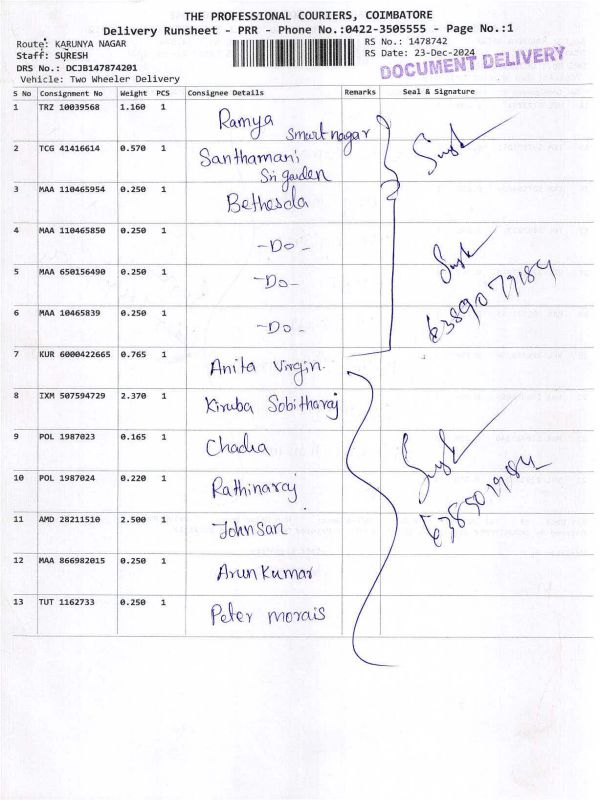 THE PROFESSIONAL COURIERS, COIMBATORE
Delivery Runsheet - PRR - Phone No.:0422-3505555 - Page No.:1
Route: KARUNYA NAGAR
Staff: SURESH
DRS No.: DCJB147874201
Vehicle: Two Wheeler Delivery
RS No.: 1478742
RS Date: 23-Dec-2024
DOCUMENT DELIVERY
S No Consignment No Weight PCS Consignee Details Remarks Seal & Signature
1 TRZ 10039568 1.160 1 Ramya
Smart nagar
2 TCG 41416614 0.570 1 Santhamani
Sri garden
3 MAA 110465954 0.250 1 Bethesda
4 MAA 110465850 0.250 1 -Do-
5 MAA 650156490 0.250 1 -Do-
6 MAA 10465839 0.250 1 -Do-
7 KUR 6000422665 0.765 1 Anita Virgin
8 IXM 507594729 2.370 1 Kiruba Sobitharaj
9 POL 1987023 0.165 1
10 POL 1987024 0.220 1 Rathinaraj
11 AMD 28211510 2.500 1 Johnsan
12 MAA 866982015 0.250 1 Arun Kumar
13 TUT 1162733 0.250 1 Peter morais